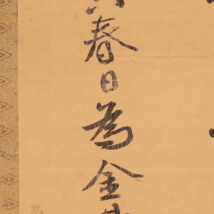 春日為金